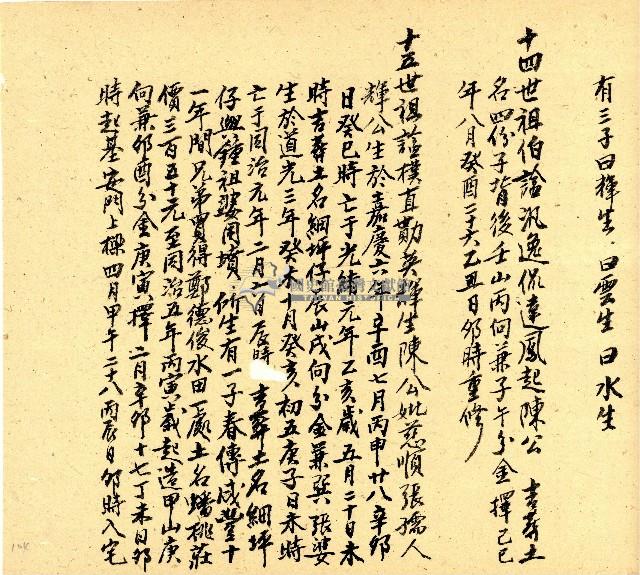 有三子曰輝生曰雲生曰水生
十四世祖伯諡汎逸侃達鳳起陳公 吉葬土
名四份子背後壬山丙向兼子午分金擇己巳
年八月癸酉二十六乙丑日卯時重修
十五世祖諡樸直勤英輝生陳公妣慈順張孺人
輝公生於嘉慶六年辛酉七月丙申廿八辛卯
日癸巳時亡于光緒元年乙亥歲五月二十日未
時吉葬土名網坪仔辰山戌向分金兼巽張婆
生於道光三年癸未十月癸亥初五庚子日未時
亡于同治元年二月六日辰時 吉葬土名網坪
仔與鍾祖婆同墳所生有一子春傳咸豐十
一年間兄弟買得鄭德俊水田一處土名蟠桃莊
價三百五十元至同治五年丙寅歲起造甲山庚
向兼卯酉分金庚寅擇二月辛卯十七丁未日卯
時起基安門上樑四月甲午二十八丙辰日卯時入宅
國史館臺灣文獻館
TAIWAN HISTORICA